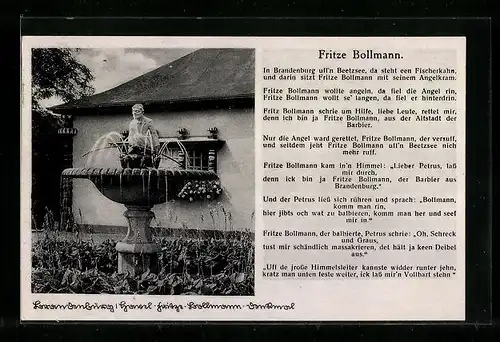 Fritze Bollmann.
In Brandenburg uff'n Beetzsee, da steht een Fischerkahn,
und darin sitzt Fritze Bollmann mit seinem Angelkram.
Fritze Bollmann wollte angeln, da fiel die Angel rin,
Fritze Bollmann wollt se' langen, da fiel er hinterdrin.
Fritze Bollmann schrie um Hilfe, liebe Leute, rettet mir,
denn ich bin ja Fritze Bollmann, aus der Altstadt der
Barbier.
Nur die Angel ward gerettet, Fritze Bollmann, der versuff,
und seitdem jeht Fritze Bollmann uff'n Beetzsee nich
mehr ruff.
Fritze Bollmann kam in'n Himmel: „Lieber Petrus, laß
mir durch,
denn ick bin ja Fritze Bollmann, der Barbier aus
Brandenburg."
Und der Petrus ließ sich rühren und sprach: „Bollmann,
komm man rin,
hier jibts och wat zu balbieren, komm man her und seef
mir in."
Fritze Bollmann, der balbierte, Petrus schrie: „Oh, Schreck
und Graus,
tust mir schändlich massakrieren, det hält ja keen Deibel
aus."
„Uff de jroße Himmelsleiter kannste widder runter jehn,
kratz man unten feste weiter, ick laß mir'n Vollbart stehn "
Brandenburg/Havel - Fritze-Bollmann-Denkmal